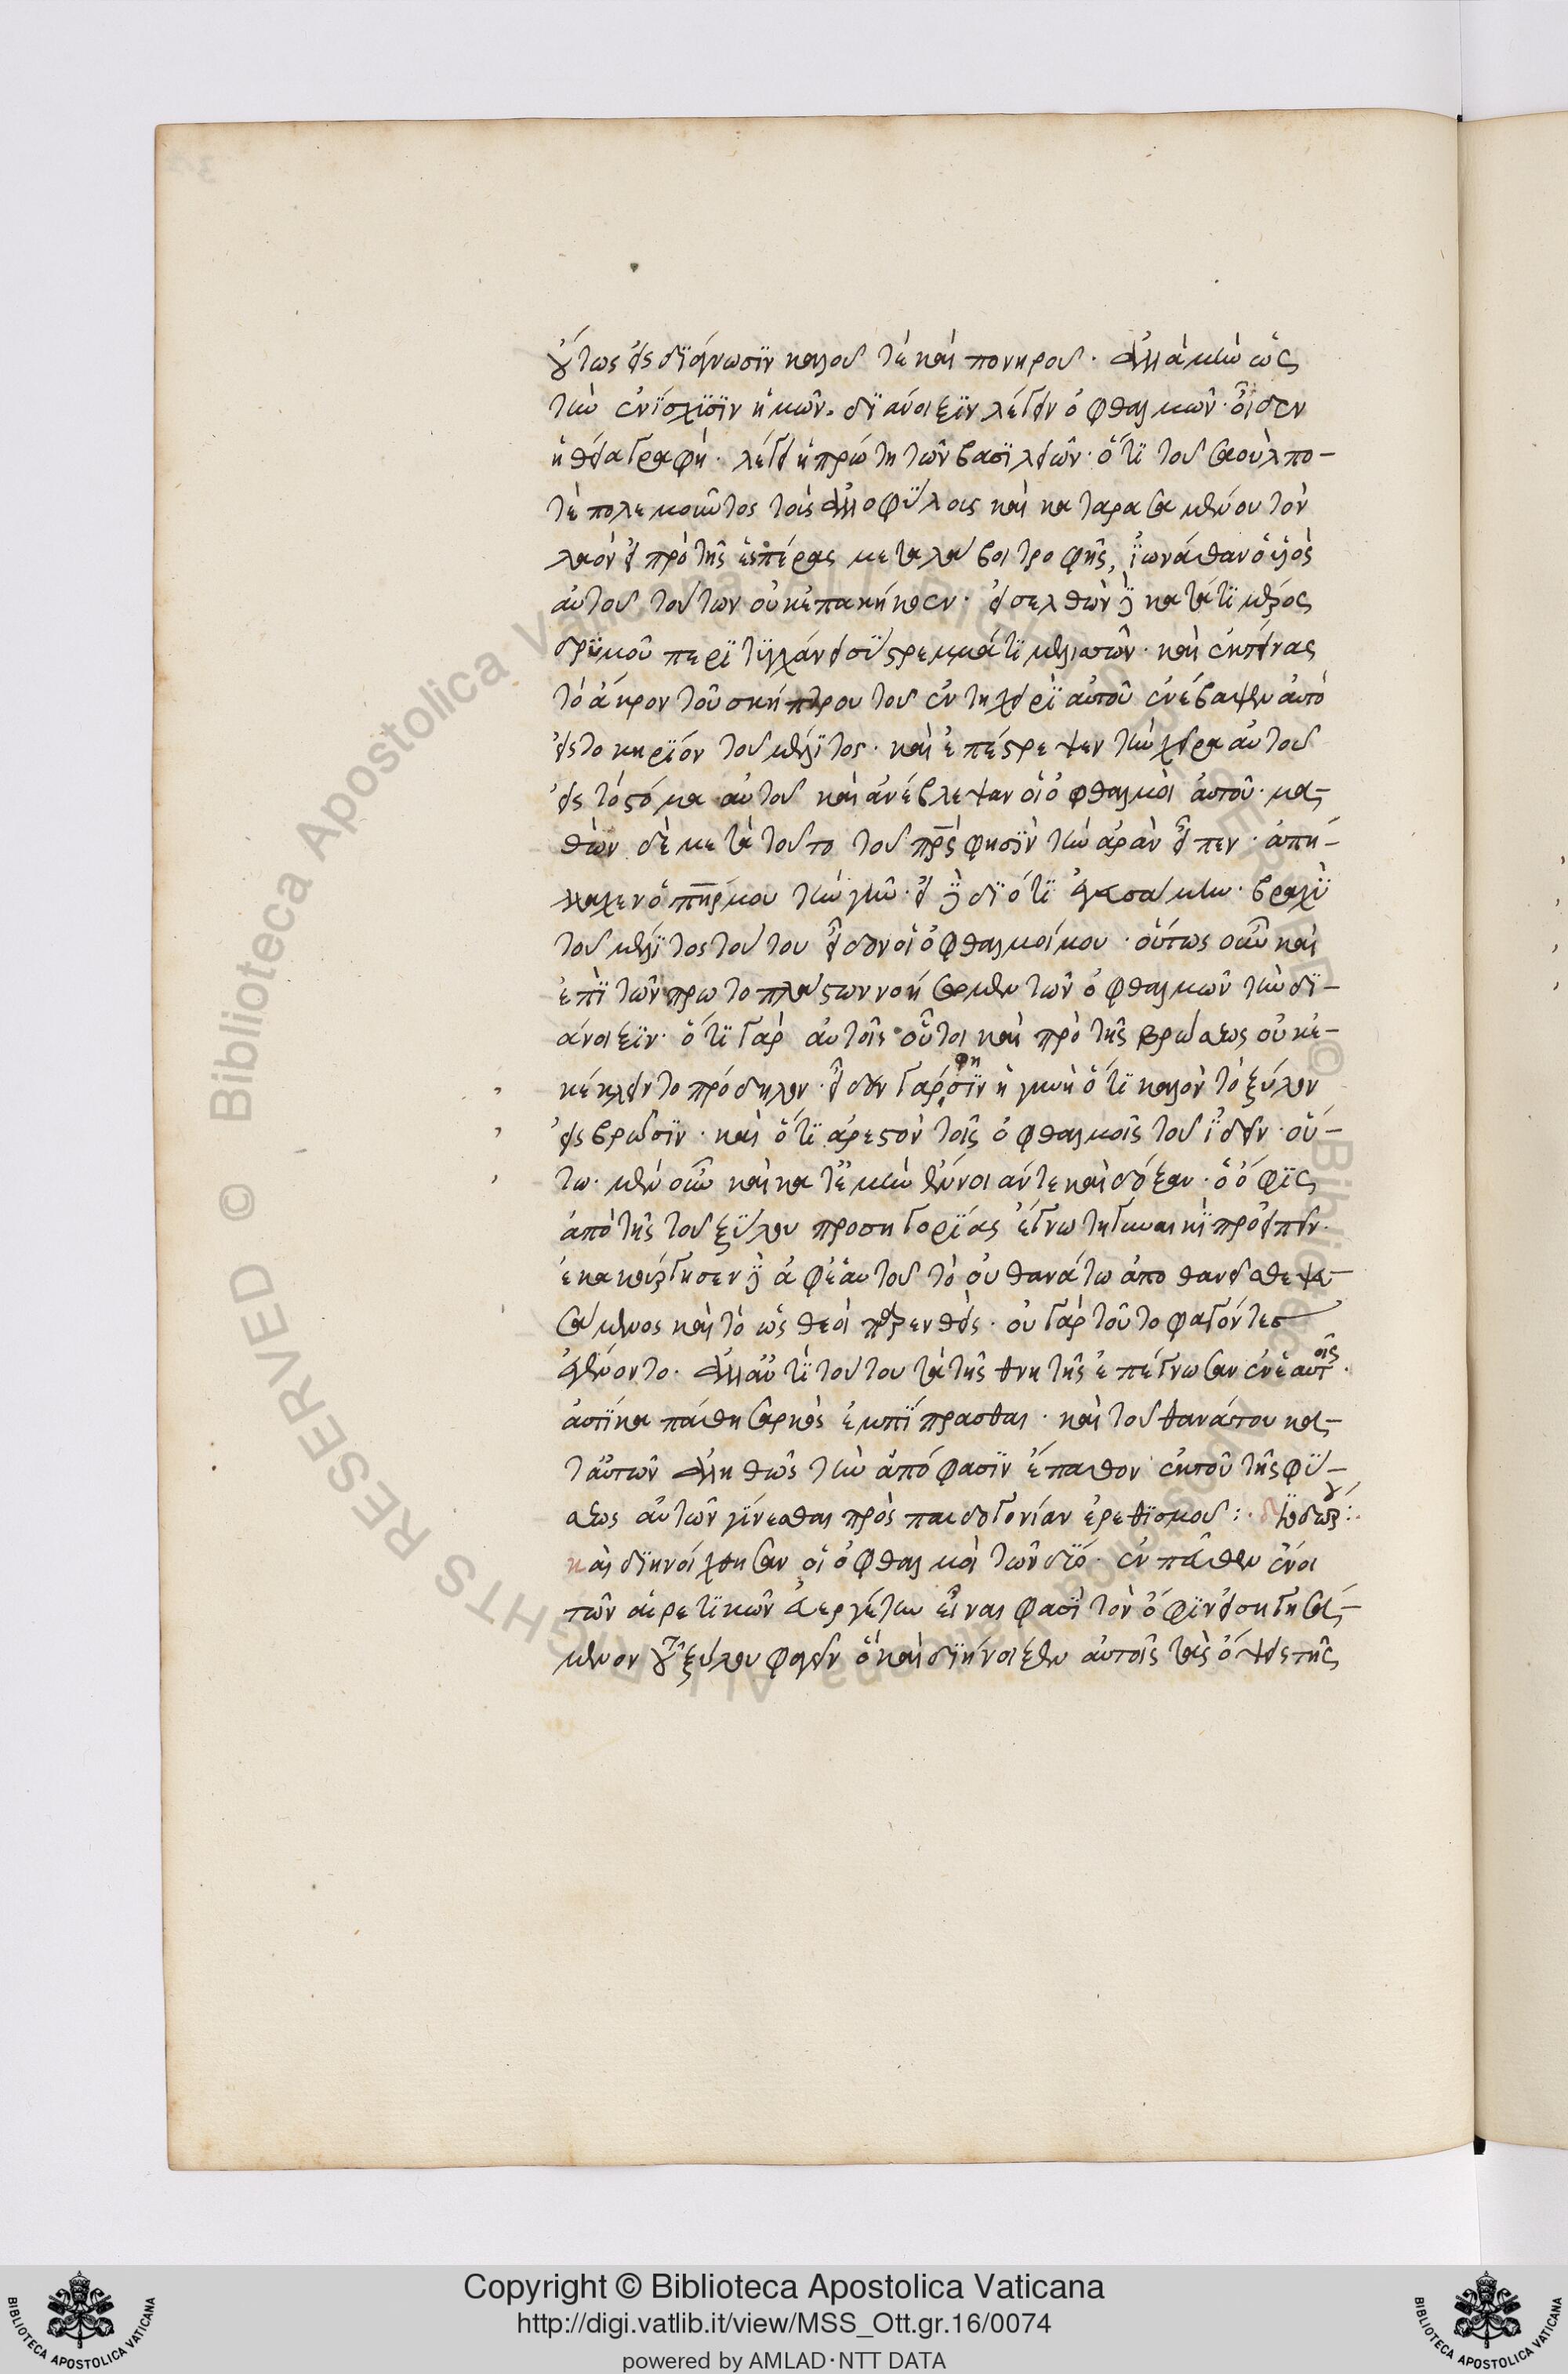 οὕτως εἰς διάγνωσϊν καλοῦ τὲ καὶ πονηροῦ · ἀλλὰ μὴν ὡς
τὴν ἐνϊσχϊσϊν ἡμῶν. δϊάνοιξϊν λέγειν ὀφθαλμῶν · οἶδεν
ἡ θεία γραφή · λέγει ἡ πρώτη τῶν βασϊλειῶν · ὅτϊ τοῦ σαοὺλ πο-
τὲ πολεμοῦντος τοῖς ἀλλοφύλοις καὶ καταρασαμένου τὸν
λαὸν εἰ πρὸ τῆς ἑσπέρας μεταλάβοι τροφῆς, ϊωνάθαν ὁ υἱὸς
αὐτοῦ τούτων οὐκ ἐπακήκοεν · εἰσελθὼν δὲ κατά τϊ μέρος
δρϋμοῦ περϊτϋγχάνει σϋστρεμμάτϊ μελισσῶν · καὶ ἐκτείνας
τὸ ἄκρον τοῦ σκήπτρου τοῦ ἐν τῆ χειρϊ αὐτοῦ ἐνέβαψεν αὐτὸ
εἰς το κηρϊόν τοῦ μέλϊτος · καὶ ἐπέστρεψεν τὴν χεῖρα αὐτοῦ
εἰς τὸ στόμα αὐτοῦ καὶ ἀνέβλεψαν οἱ ὀφθαλμοὶ αὐτοῦ · μα-
θὼν δὲ μετὰ τοῦτο τοῦ πρς φησϊν τὴν ἀρὰν εἶπεν · ἀπή-
λλαχεν ὁ πηρ μου τὴν γῆν · εἰ δὲ δϊότϊ ἐγευσάμην · βραχὺ
τοῦ μέλϊτος τούτου εἶδον οἱ ὀφθαλμοί μου · οὕτως οὖν καὶ
ἐπϊ τῶν πρωτοπλάστων νοήσωμεν τῶν ὀφθαλμῶν τὴν δϊ-
άνοιξϊν · ὅτϊ γὰρ αὐτοῖς οὗτοι καὶ πρὸ τῆς βρώσεως οὐκ ἐ-
κέκλειντο πρόδηλον · εἶδεν γάρ φησϊν ἡ γυνὴ ὅτϊ καλὸν τὸ ξύλον
εἰς βρῶσϊν · καὶ ὅτϊ ἀρεστὸν τοῖς ὀφθαλμοῖς τοῦ ϊδεῖν · οὕ-
τω · μὲν οὖν καὶ κατ' ἐμὴν ἔννοιάν τε καὶ δόξαν · ὁ ὄφϊς
ἀπὸ τῆς τοῦ ξύλου προσηγορϊας ἔγνω τῆ γυναικϊ προειπεῖν ·
ἐκακούργησεν δὲ ἀφ' ἑαυτοῦ τὸ οὐ θανάτω ἀποθανεῖσθε ψευ-
σάμενος καὶ τὸ ὡς θεοὶ παρενθείς · οὐ γὰρ τοῦτο φαγόντες
ἐγένοντο · ἀλλ' ἀντϊ τούτου τὰ τῆς θνητῆς ἐπέγνωσαν ἐν ἑαυτοῖς ·
αὐτϊκα πάθη σαρκὸς ἐμπϊπρασθαι · καὶ τοῦ θανάτου κα-
τ' αὐτῶν ἀληθῶς τὴν ἀπόφασϊν ἔπαθον ἐκ τοῦ τῆς φύ-
σεως αὐτῶν γίνεσθαι πρὸς παιδογονίαν ἐρεθϊσμοῦ :· διοδώρου :·
καὶ δϊηνοίχθησαν οἱ ὀφθαλμοὶ τῶν δύο · ἐνταῦθεν ἔνοι
τῶν αἱρετϊκῶν εὐεργέτην εἶναι φασϊ τὸν ὄφϊν εἰσηγησά-
μενον τοῦ ξύλου φαγεῖν ὃ καὶ δϊήνοιξεν αὐτοῖς τὰς ὄψεις τῆς
Copyright © Biblioteca Apostolica Vaticana
http://digi.vatlib.it/view/MSS_Ott.gr.16/0074
powered by AMLAD·NTT DATA